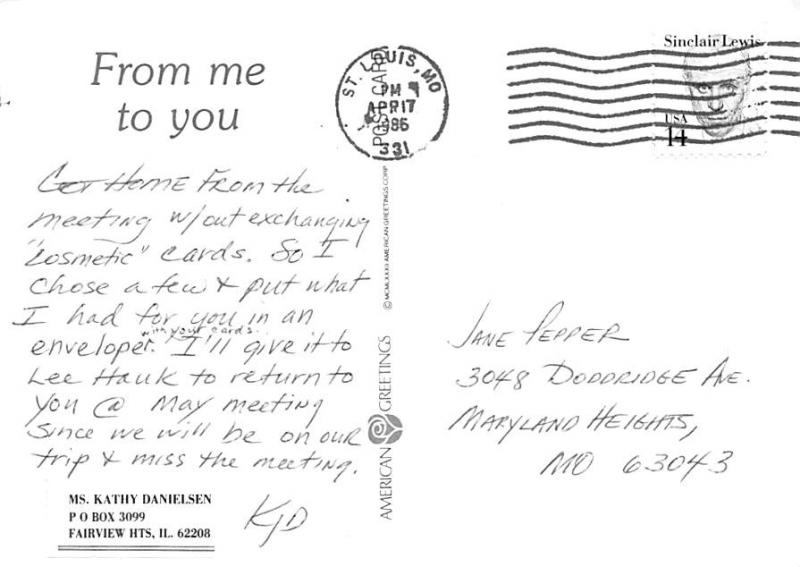 From me
to you
Got Home From the
meeting w/out exchanging
"cosmetic" cards. So I
chose a few & put what
I had for you in an
with your cards.
enveloper. I'll give it to
Lee Hauk to return to
you @ May meeting
since we will be on our
trip & miss the meeting.
KJD
MS. KATHY DANIELSEN
P O BOX 3099
FAIRVIEW HTS, IL. 62208
POST CARD
© MCMLXXXII AMERICAN GREETINGS CORP
AMERICAN GREETINGS
ST. LOUIS, MO
PM
APR 17
1986
331
Sinclair Lewis
USA
14
JANE PEPPER
3048 DODDRIDGE AVE.
MARYLAND HEIGHTS,
MO 63043